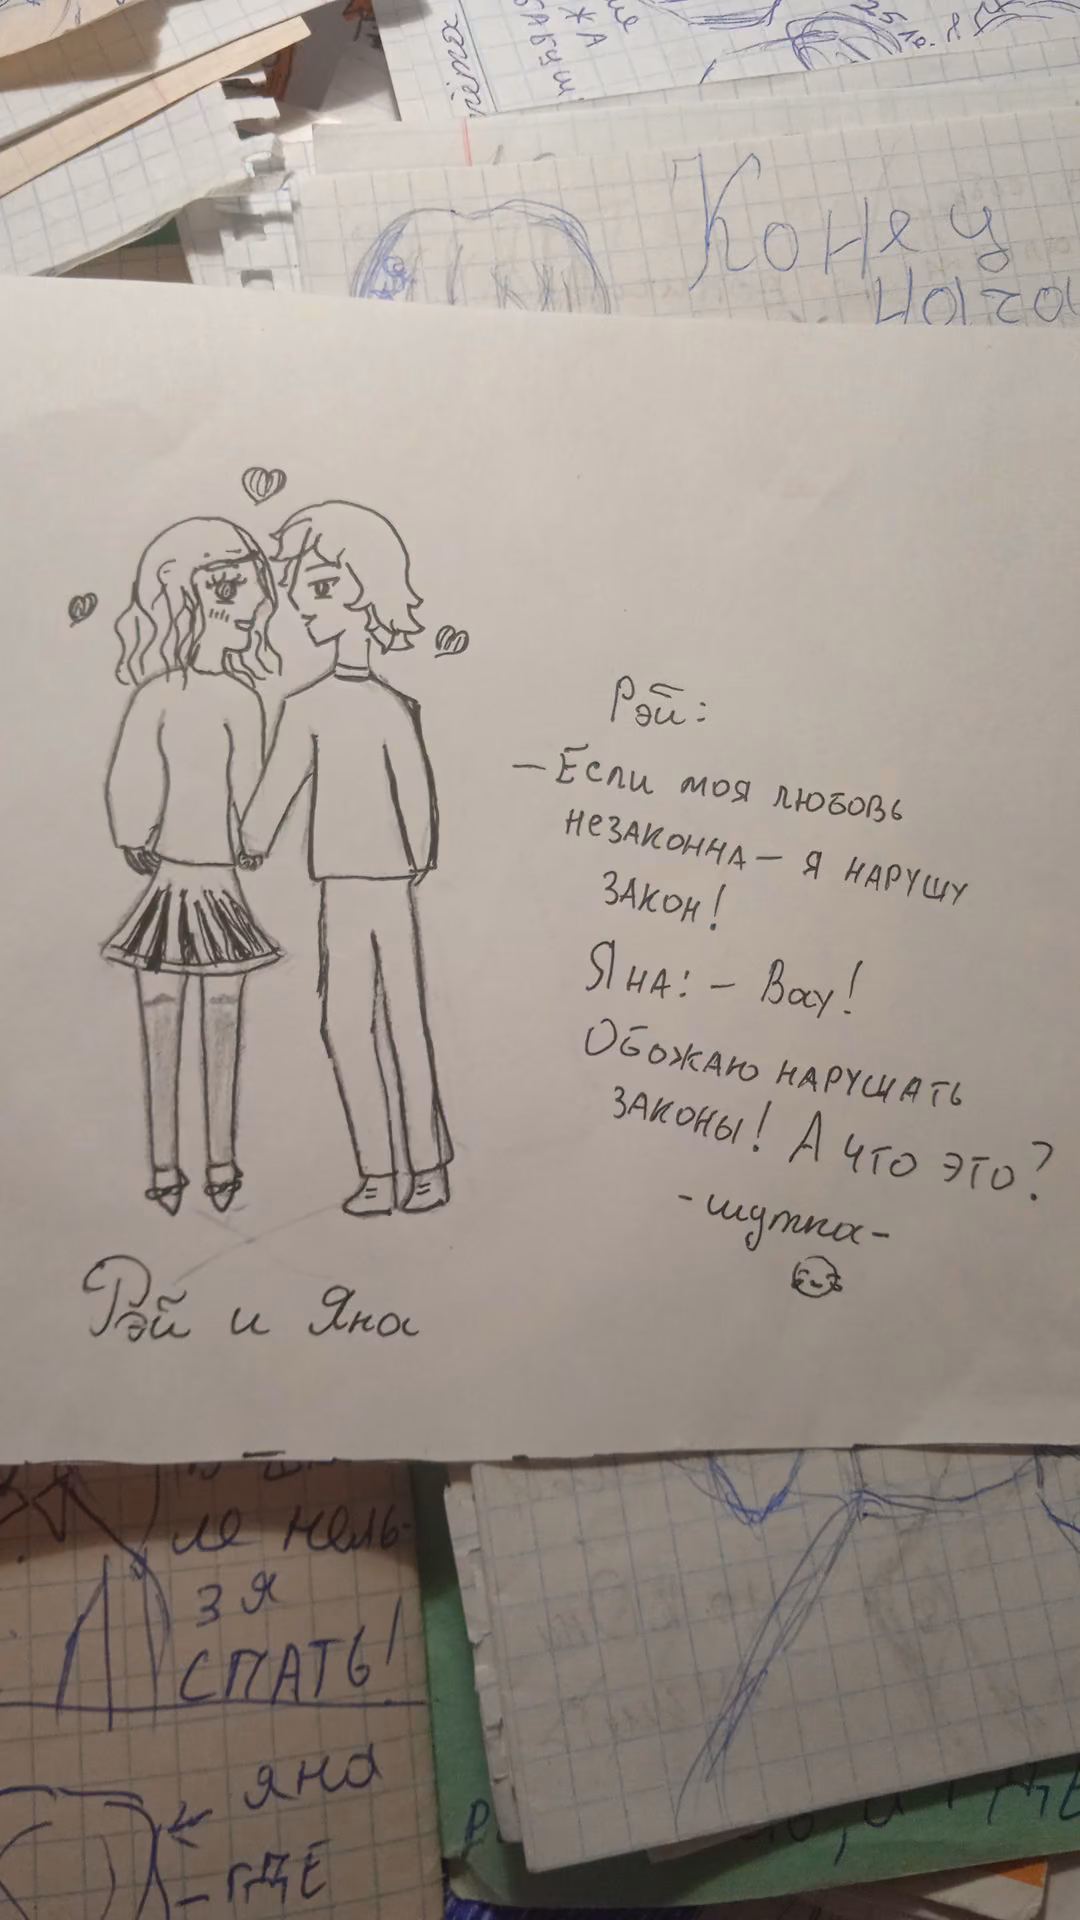 БАБУШ
25
Конец
Рэй:
— Если моя любовь
незаконна — я нарушу
закон!
Яна: — Вау!
Обожаю нарушать
законы! А что это?
- шутка -
Рэй и Яна
ле нель-
зя
спать!
яна
- ГДЕ